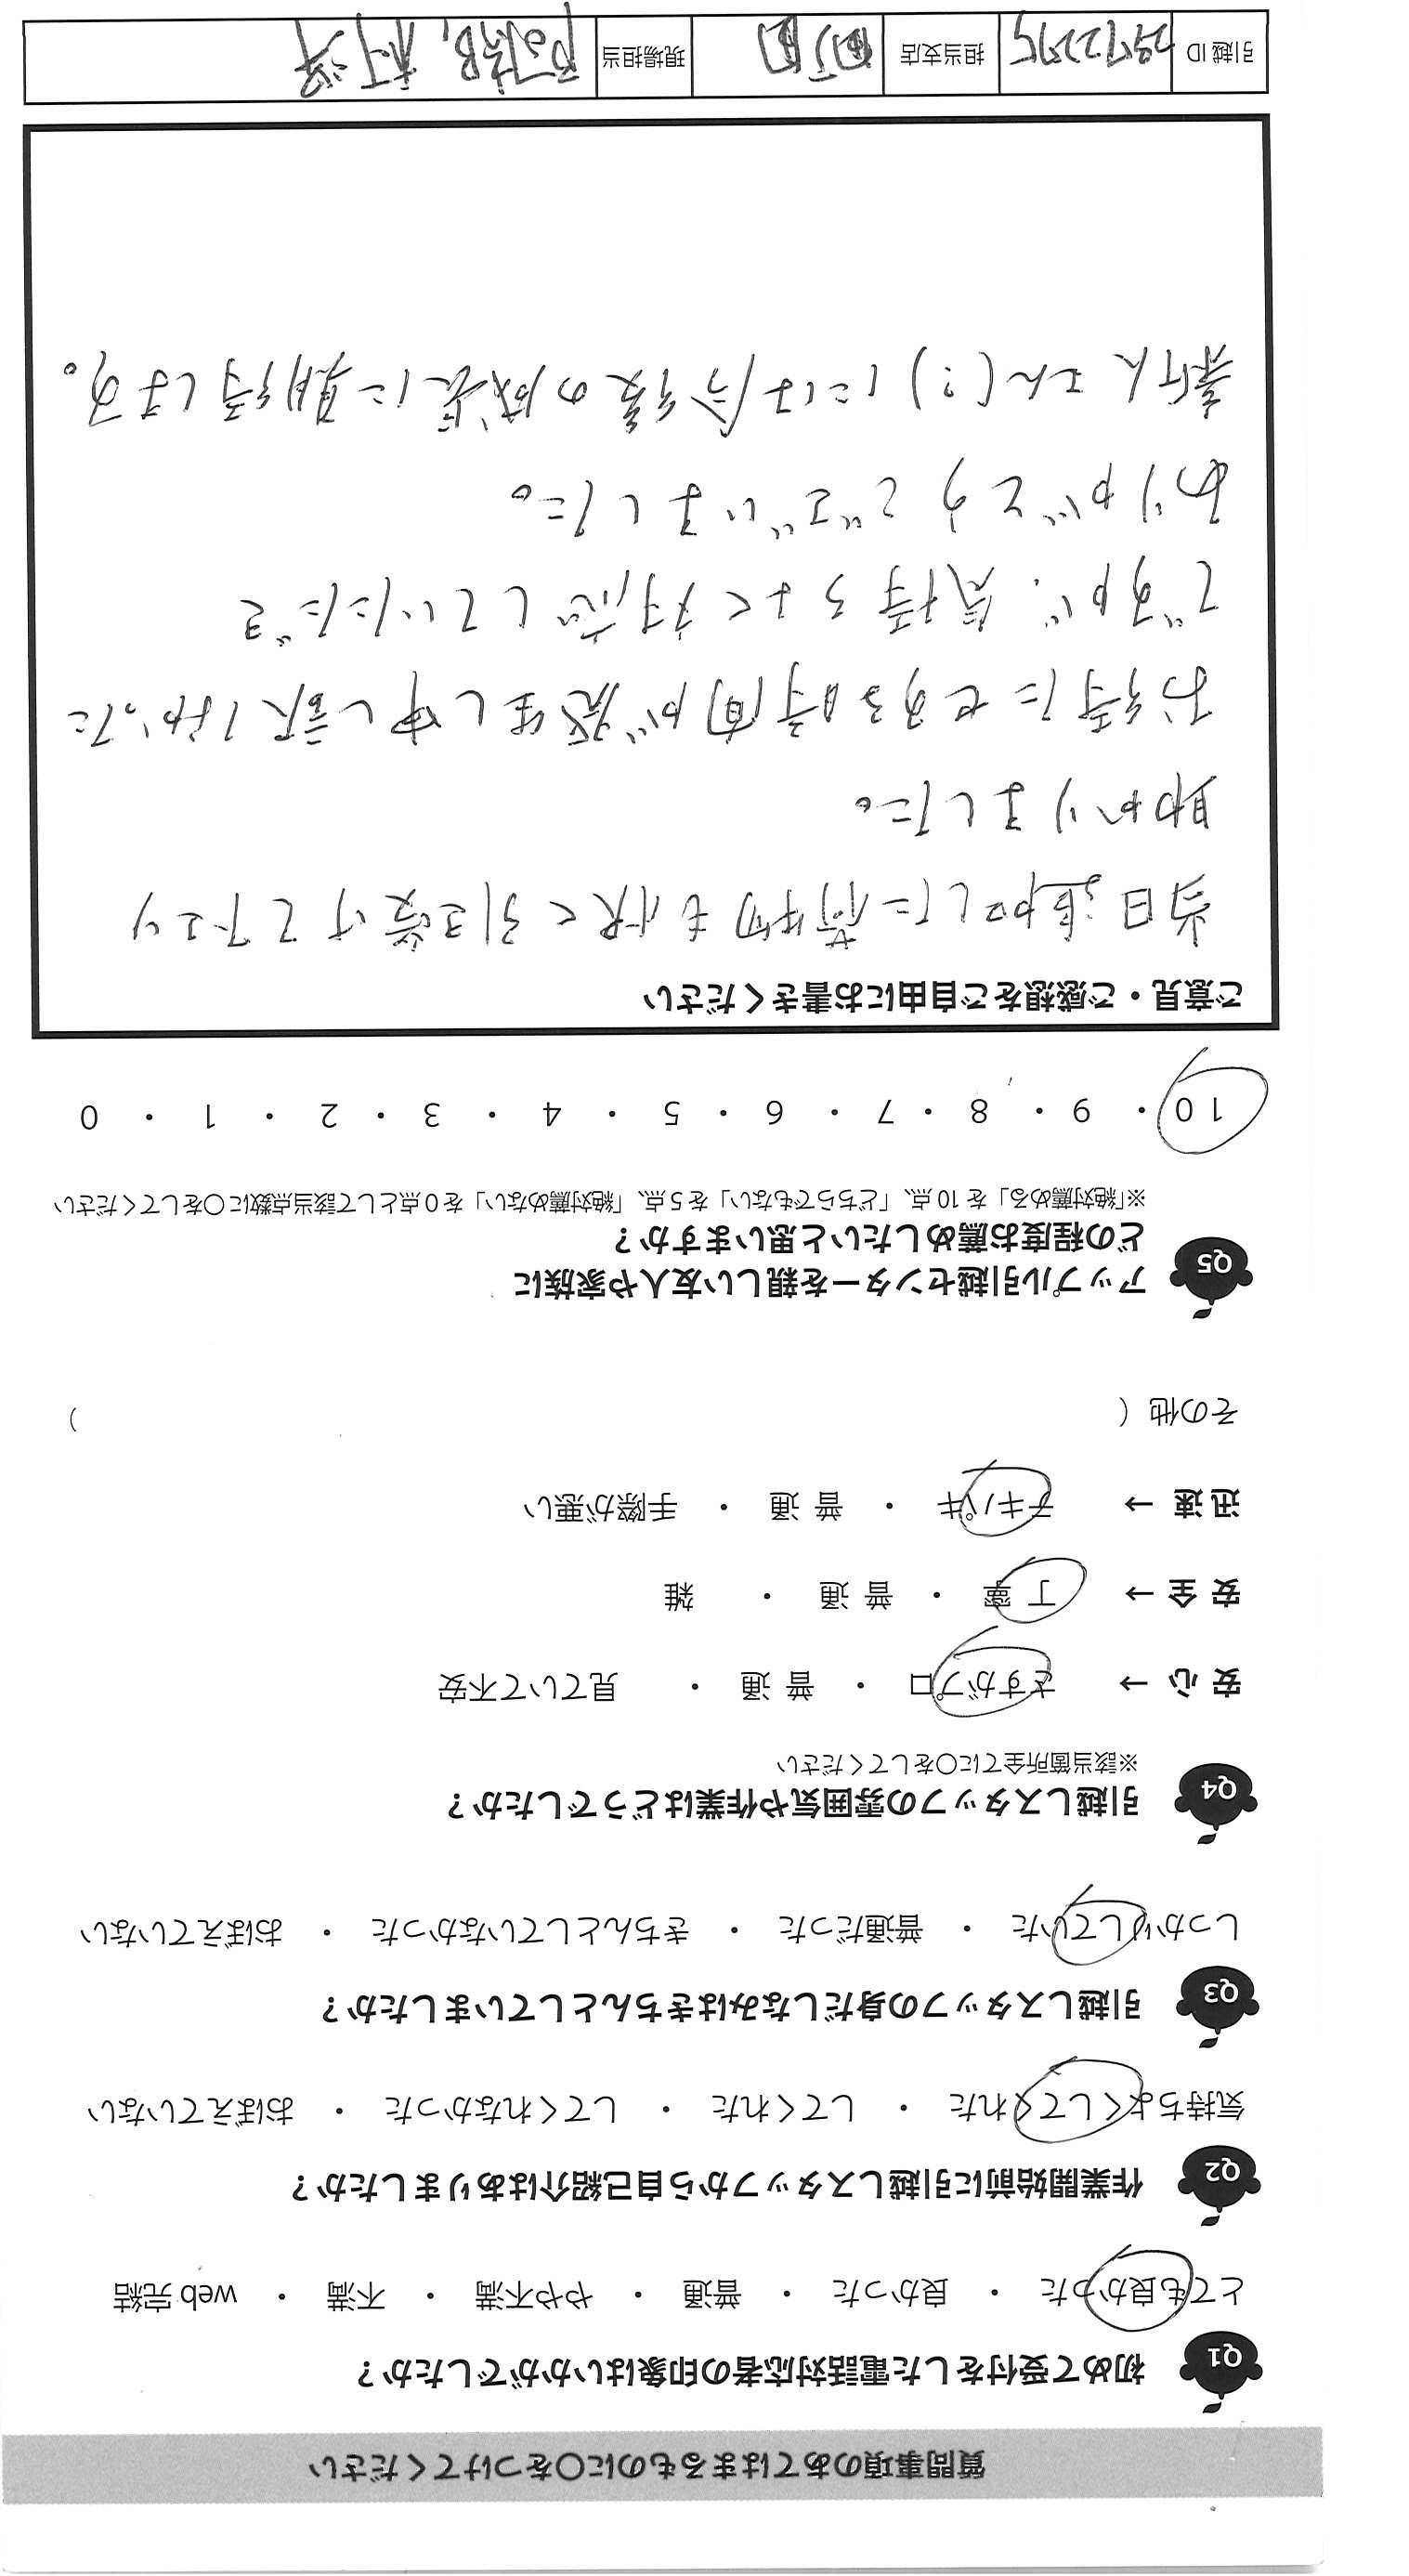 質問事項のあてはまるものに○をつけてください
Q1 初めて受付をした電話対応者の印象はいかがでしたか？
とても良かった ・ 良かった ・ 普通 ・ やや不満 ・ 不満 ・ web 完結
Q2 作業開始前に引越しスタッフから自己紹介はありましたか？
気持ちよくしてくれた ・ してくれた ・ してくれなかった ・ おぼえていない
Q3 引越しスタッフの身だしなみはきちんとしていましたか？
しっかりしていた ・ 普通だった ・ きちんとしていなかった ・ おぼえていない
Q4 引越しスタッフの雰囲気や作業はどうでしたか？
※該当箇所全てに○をしてください
安 心 → さすがプロ ・ 普 通 ・ 見ていて不安
安 全 → 丁 寧 ・ 普 通 ・ 雑
迅 速 → テキパキ ・ 普 通 ・ 手際が悪い
その他（ ）
Q5 アップル引越センターを親しい友人や家族に
どの程度お薦めしたいと思いますか？
※「絶対薦める」を 10 点、「どちらでもない」を 5 点、「絶対薦めない」を 0 点として該当点数に○をしてください
10 ・ 9 ・ 8 ・ 7 ・ 6 ・ 5 ・ 4 ・ 3 ・ 2 ・ 1 ・ 0
ご意見・ご感想をご自由にお書きください
当日追加した荷物も快く引き受けて下さり
助かりました。
お待たせする時間が発生し申し訳なかった
ですが、気持ちよく対応していただき
ありがとうございました。
新人さん(?)には今後の成長に期待します。
引越 ID 担当支店 現場担当